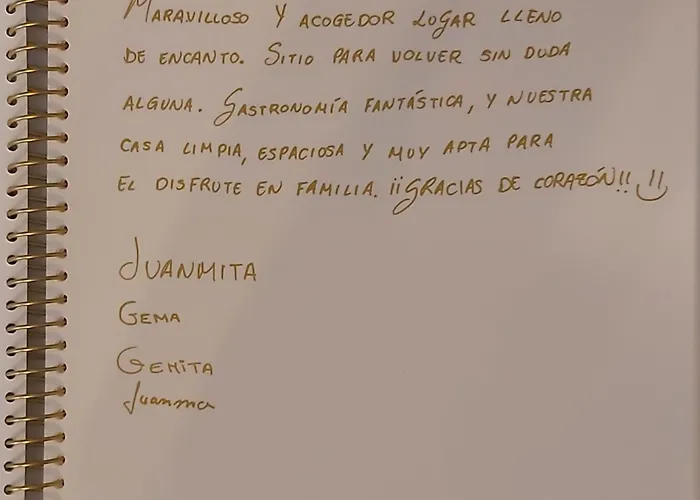 MARAVILLOSO Y ACOGEDOR LOGAR LLENO
DE ENCANTO. SITIO PARA VOLVER SIN DUDA
ALGUNA. GASTRONOMÍA FANTÁSTICA, Y NUESTRA
CASA LIMPIA, ESPACIOSA Y MUY APTA PARA
EL DISFRUTE EN FAMILIA. ¡¡GRACIAS DE CORAZÓN!!
JUANMITA
GEMA
GEMITA
Juanma